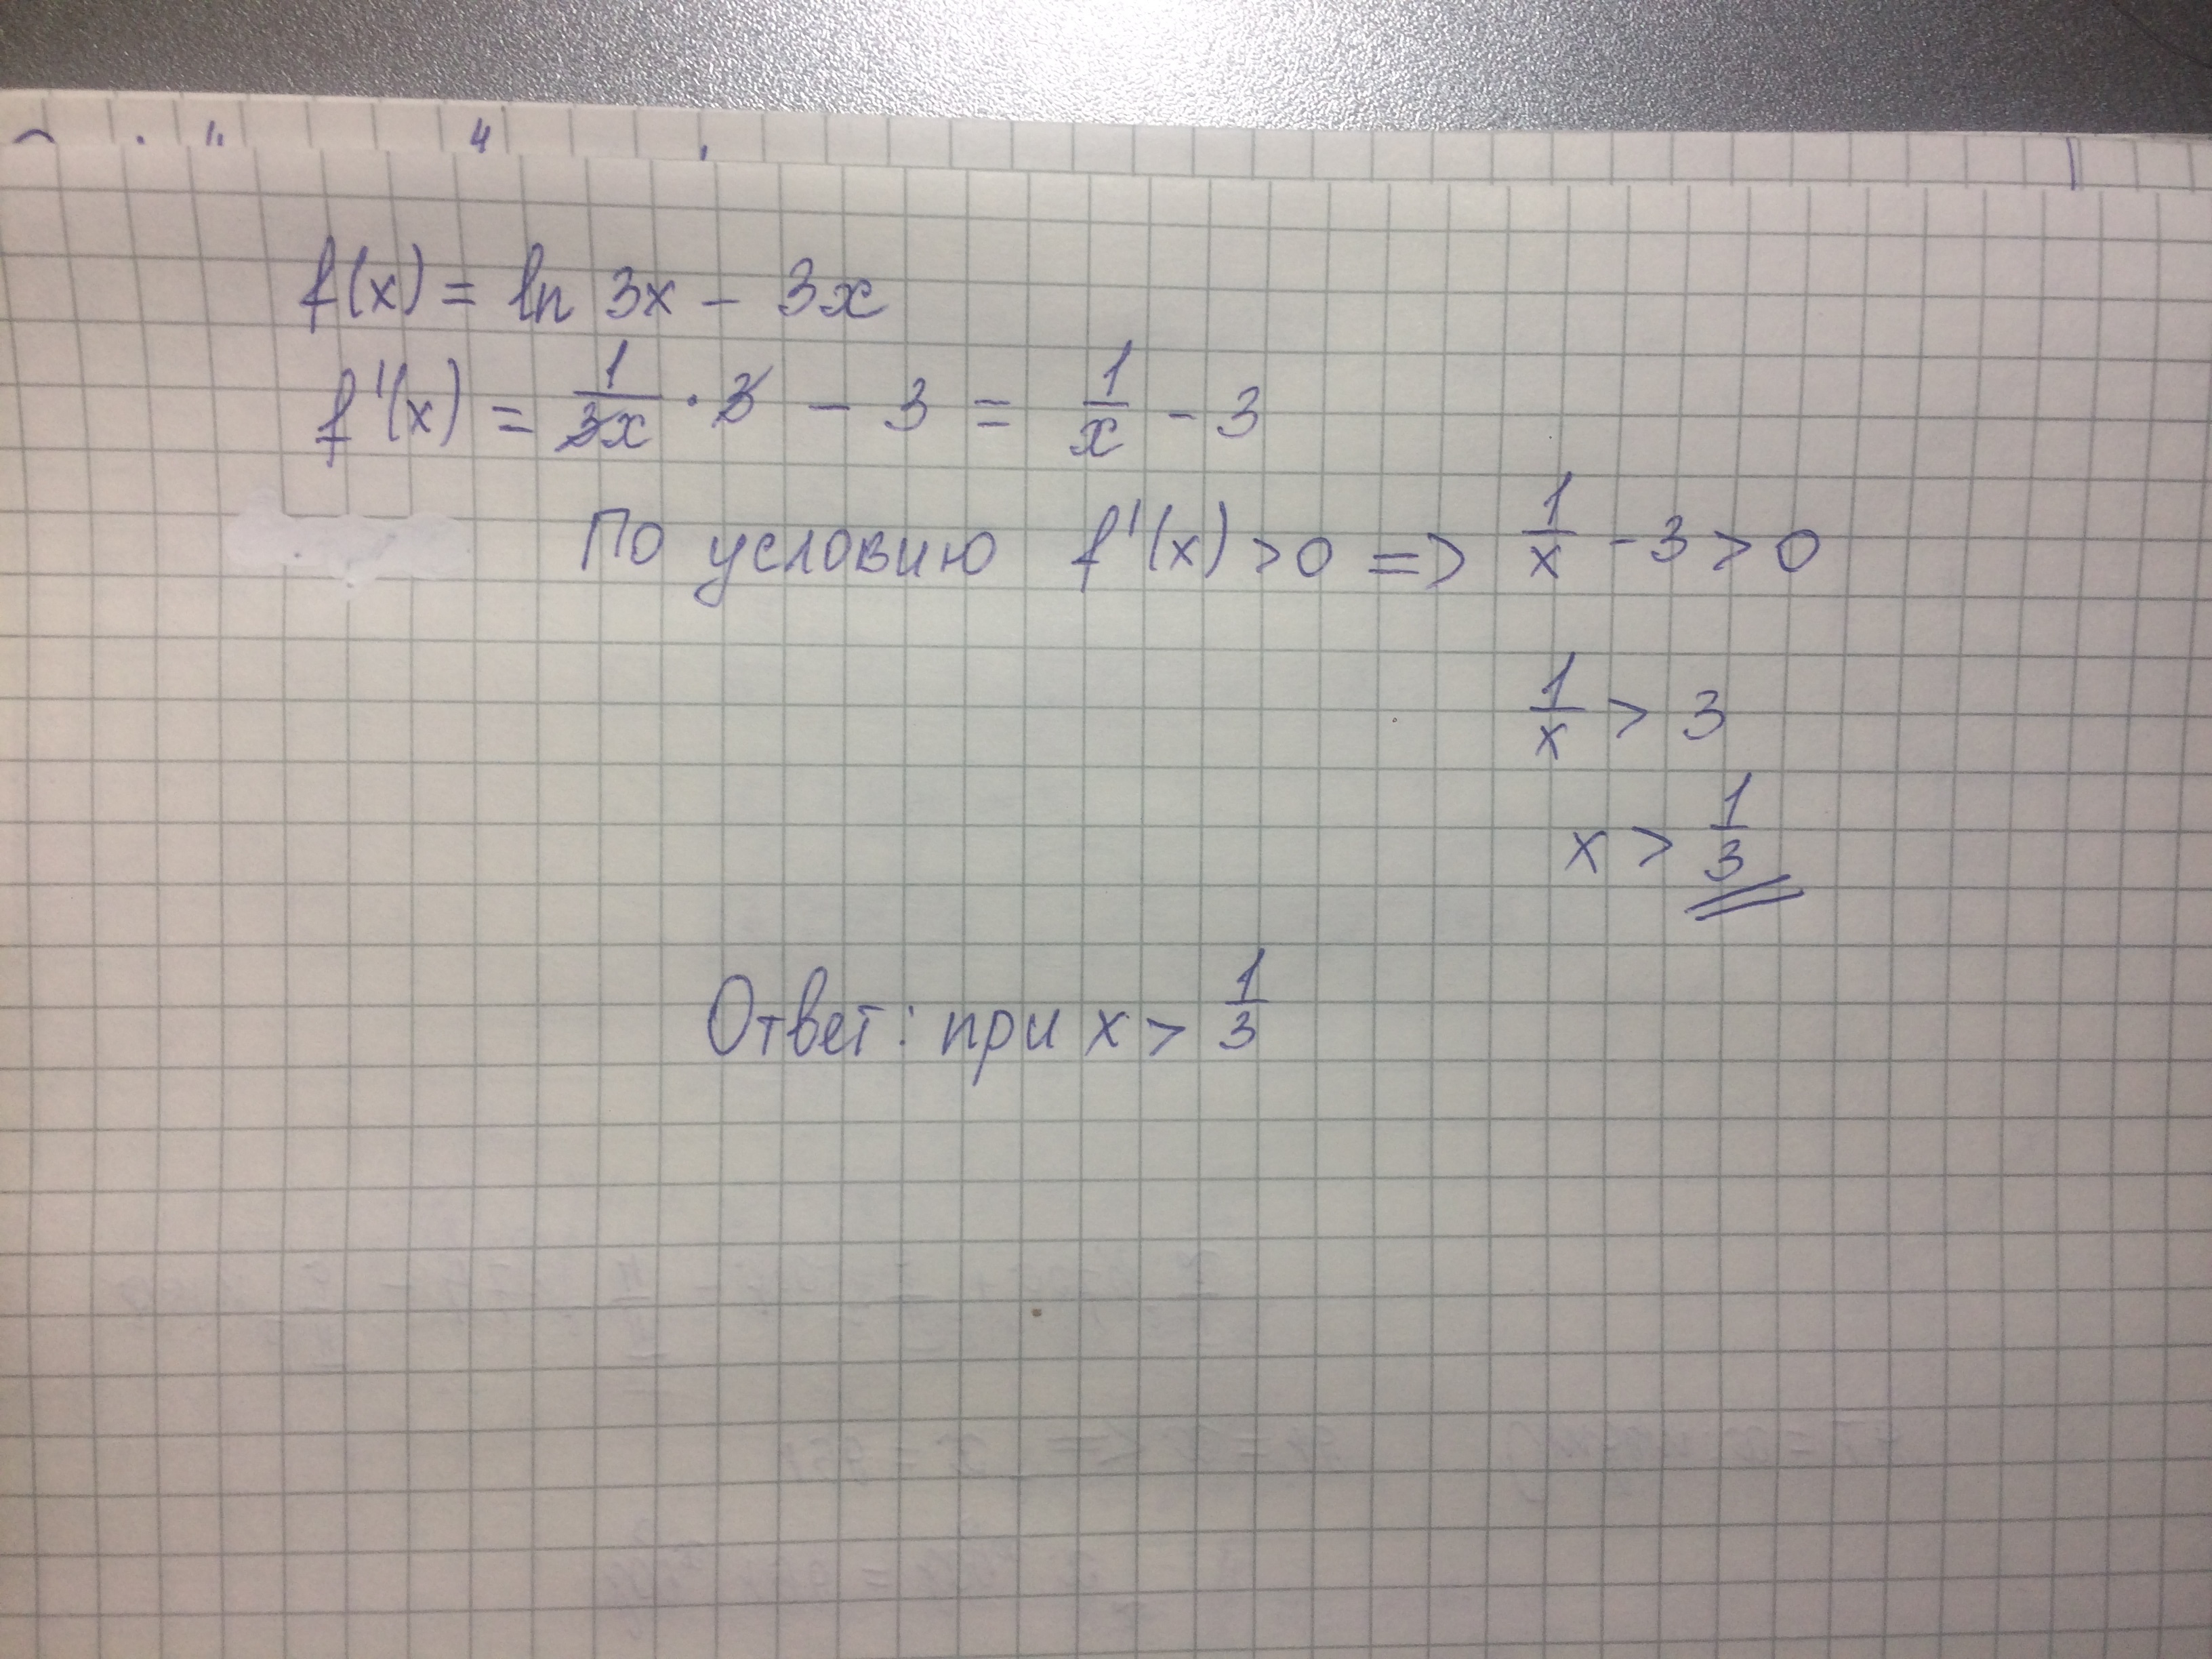 f(x) = ln 3x - 3x
f'(x) = 1/3x · 3 - 3 = 1/x - 3
По условию f'(x) > 0 => 1/x - 3 > 0
1/x > 3
x > 1/3
Ответ: при x > 1/3